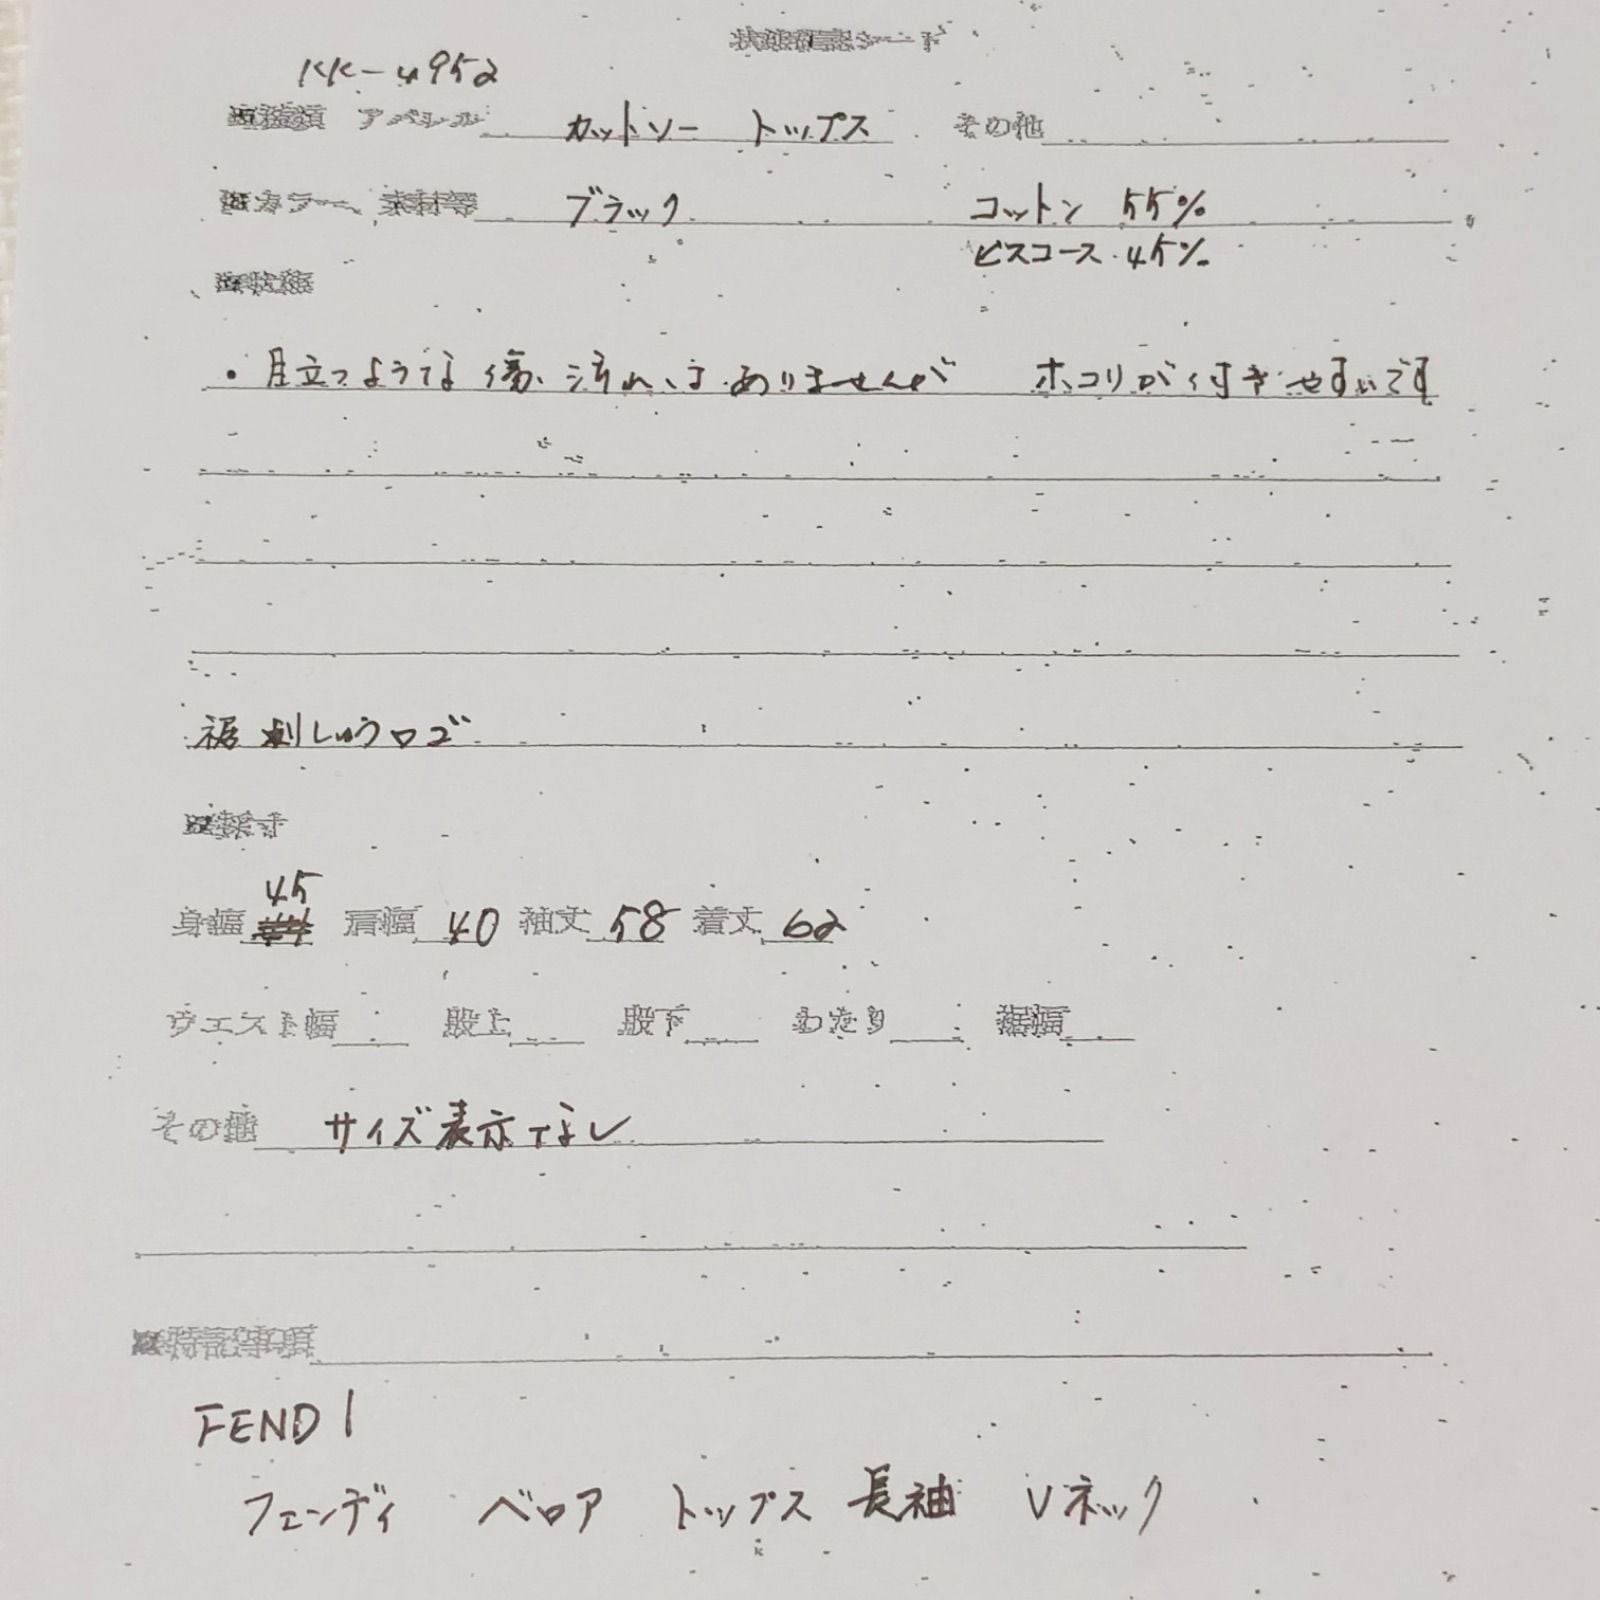 状態確認シート
KK-4952
■種類 アパレル カットソー トップス その他
■カラー、素材等 ブラック コットン 55%
ビスコース 45%
■状態
・目立つような傷、汚れ、はありませんが ホコリが付きやすいです
裾 刺しゅうロゴ
■採寸
45
身幅 肩幅 40 袖丈 58 着丈 62
ウエスト幅 股上 股下 わたり 裾幅
その他 サイズ表示なし
■特記事項
FENDI
フェンディ ベロア トップス 長袖 Vネック